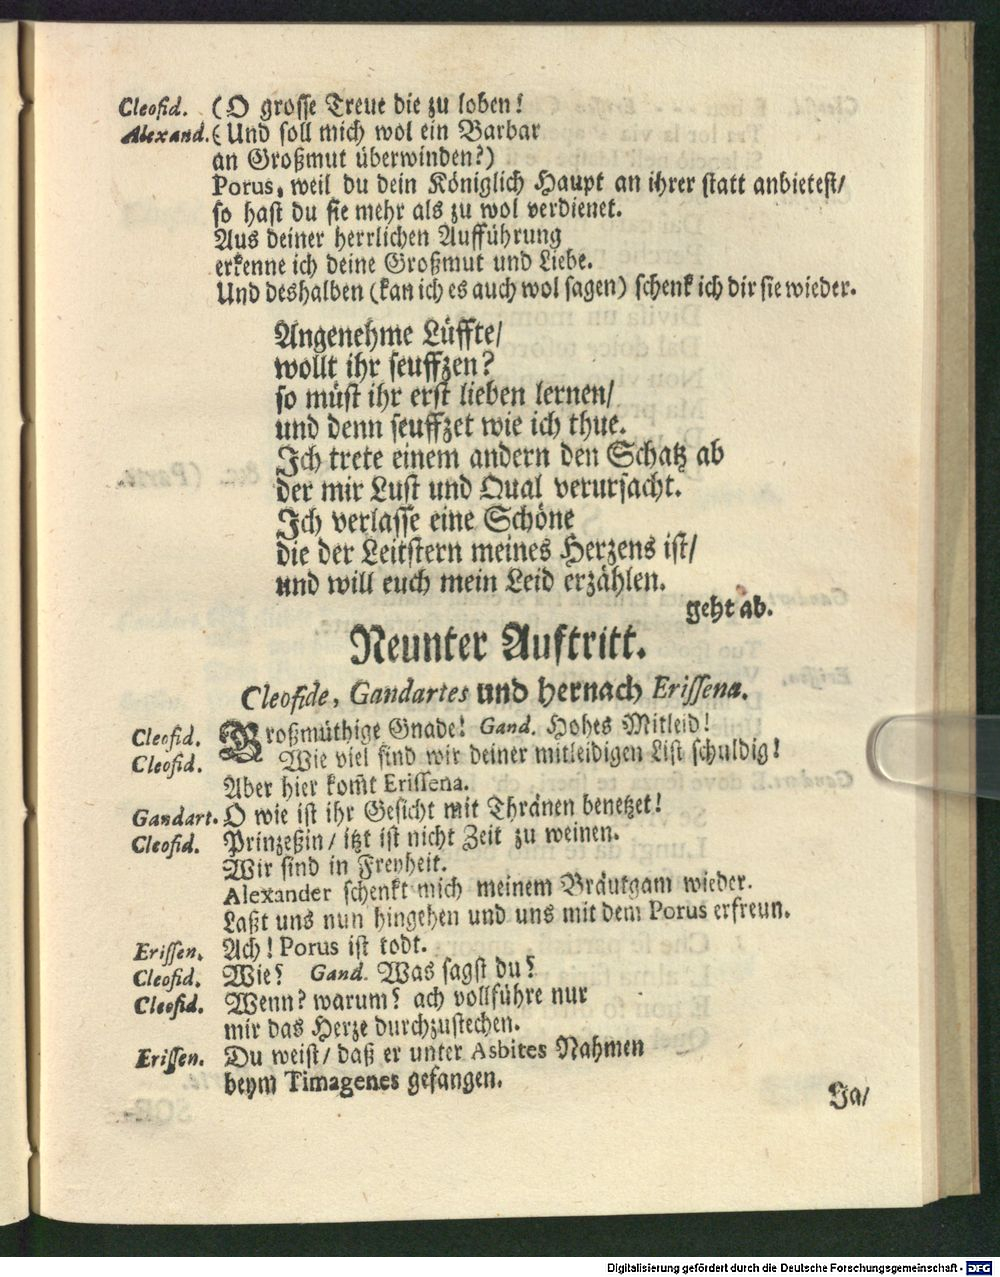 Cleofid. (O grosse Treue die zu loben!
Alexand. (Und soll mich wol ein Barbar
an Großmut überwinden?)
Porus, weil du dein Königlich Haupt an ihrer statt anbietest/
so hast du sie mehr als zu wol verdienet.
Aus deiner herrlichen Aufführung
erkenne ich deine Großmut und Liebe.
Und deshalben (kan ich es auch wol sagen) schenk ich dir sie wieder.
Angenehme Lüffte/
wollt ihr seuffzen?
so müst ihr erst lieben lernen/
und denn seuffzet wie ich thue.
Ich trete einem andern den Schatz ab
der mir Lust und Qual verursacht.
Ich verlasse eine Schöne
die der Leitstern meines Herzens ist/
und will euch mein Leid erzählen.
geht ab.
Neunter Auftritt.
Cleofide, Gandartes und hernach Erissena.
Cleofid. Großmüthige Gnade! Gand. Hohes Mitleid!
Cleofid. Wie viel sind wir deiner mitleidigen List schuldig!
Aber hier kom̃t Erissena.
Gandart. O wie ist ihr Gesicht mit Thränen benetzet!
Cleofid. Prinzeßin/ itzt ist nicht Zeit zu weinen.
Wir sind in Freyheit.
Alexander schenkt mich meinem Bräutgam wieder.
Laßt uns nun hingehen und uns mit dem Porus erfreun.
Erissen. Ach! Porus ist todt.
Cleofid. Wie? Gand. Was sagst du?
Cleofid. Wenn? warum? ach vollführe nur
mir das Herze durchzustechen.
Erissen. Du weist/ daß er unter Asbites Nahmen
beym Timagenes gefangen.
Ja/
Digitalisierung gefördert durch die Deutsche Forschungsgemeinschaft - DFG